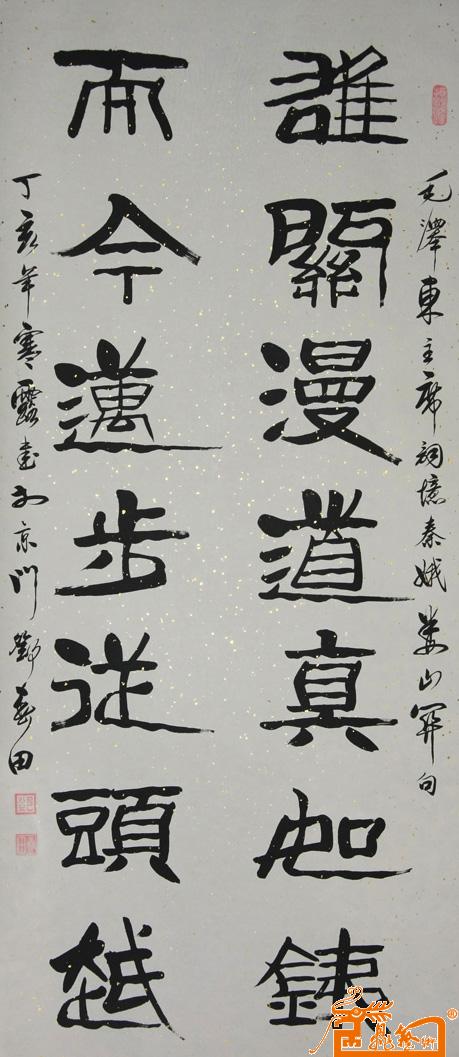 毛澤東主席詞憶秦娥婁山關句
雄關漫道真如銕
而今邁步從頭越
丁亥年寒露書於京門春田